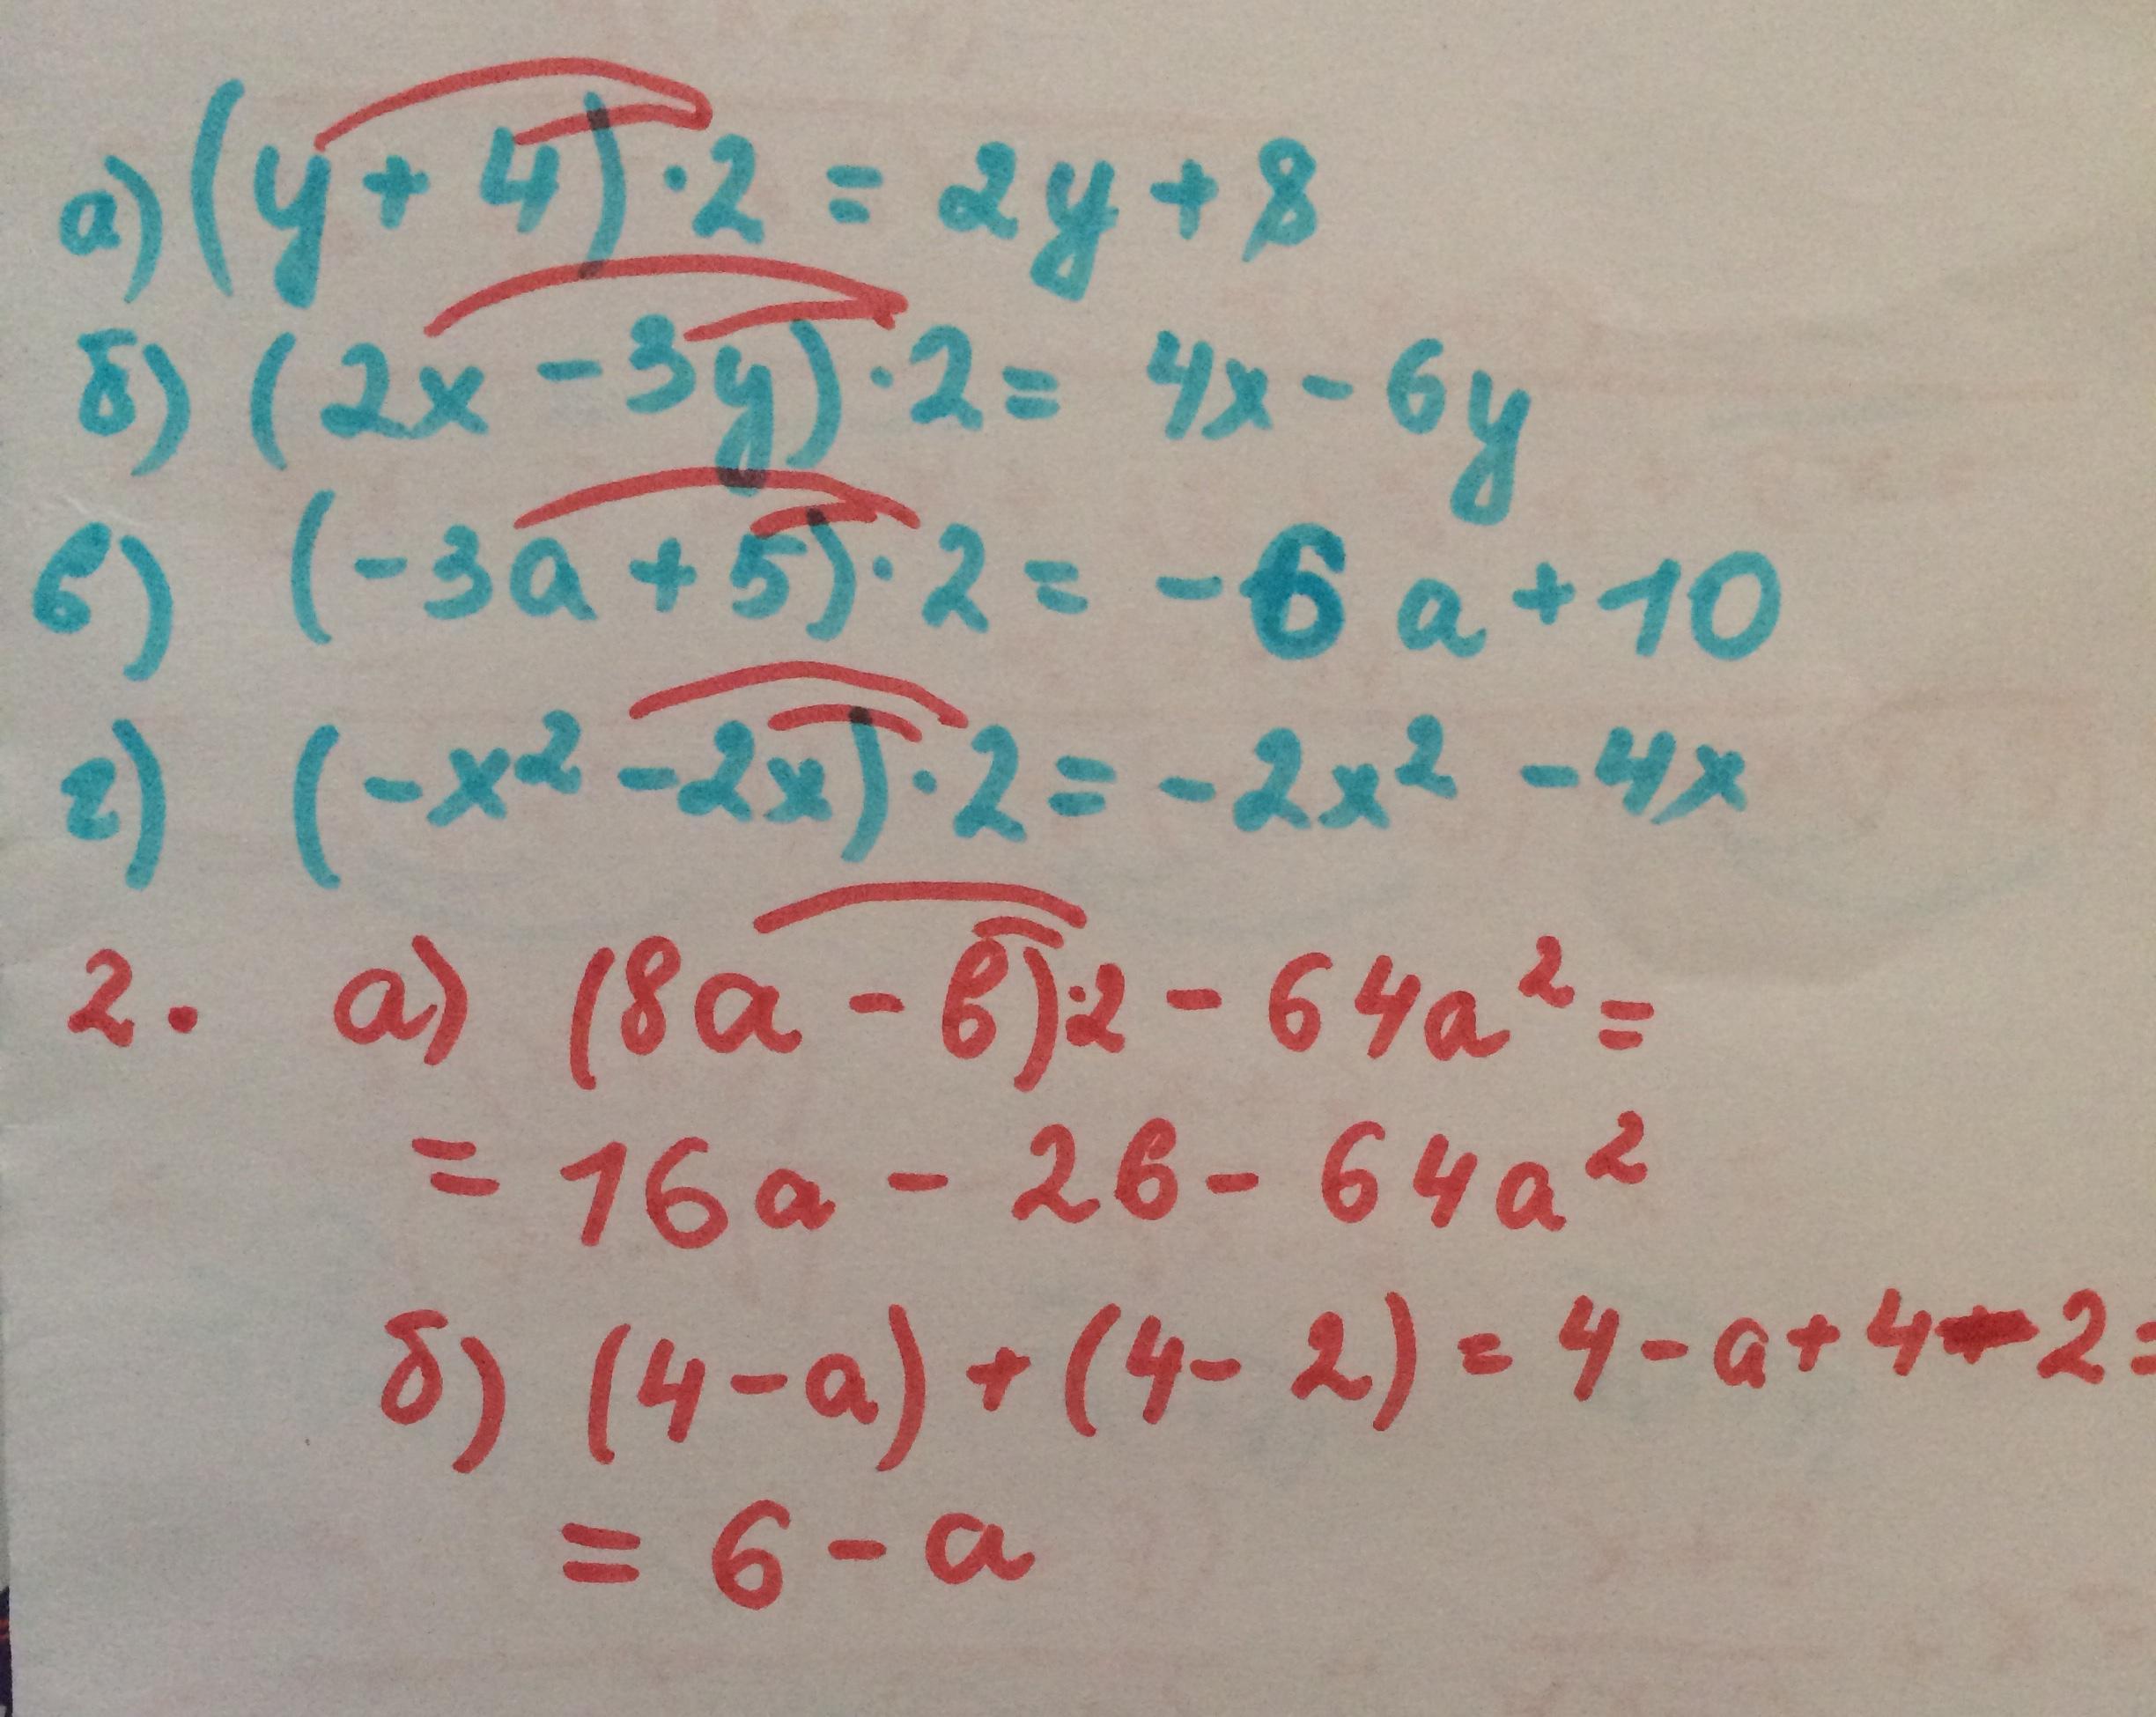 а) (y + 4) · 2 = 2y + 8
б) (2x - 3y) · 2 = 4x - 6y
в) (-3a + 5) · 2 = -6a + 10
г) (-x² - 2x) · 2 = -2x² - 4x
2. а) (8a - в) · 2 - 64a² =
= 16a - 2в - 64a²
б) (4 - a) + (4 - 2) = 4 - a + 4 - 2 =
= 6 - a